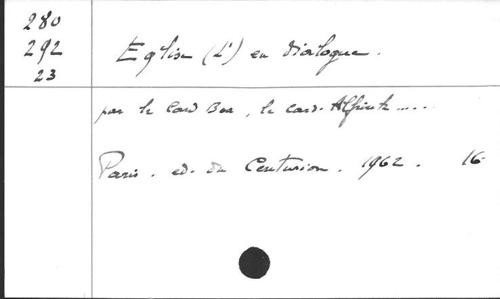 280
292
23
Eglise (L') en dialogue.
par le Card Bea, le card. Alfrink .....
Paris. ed. du Centurion. 1962. 16